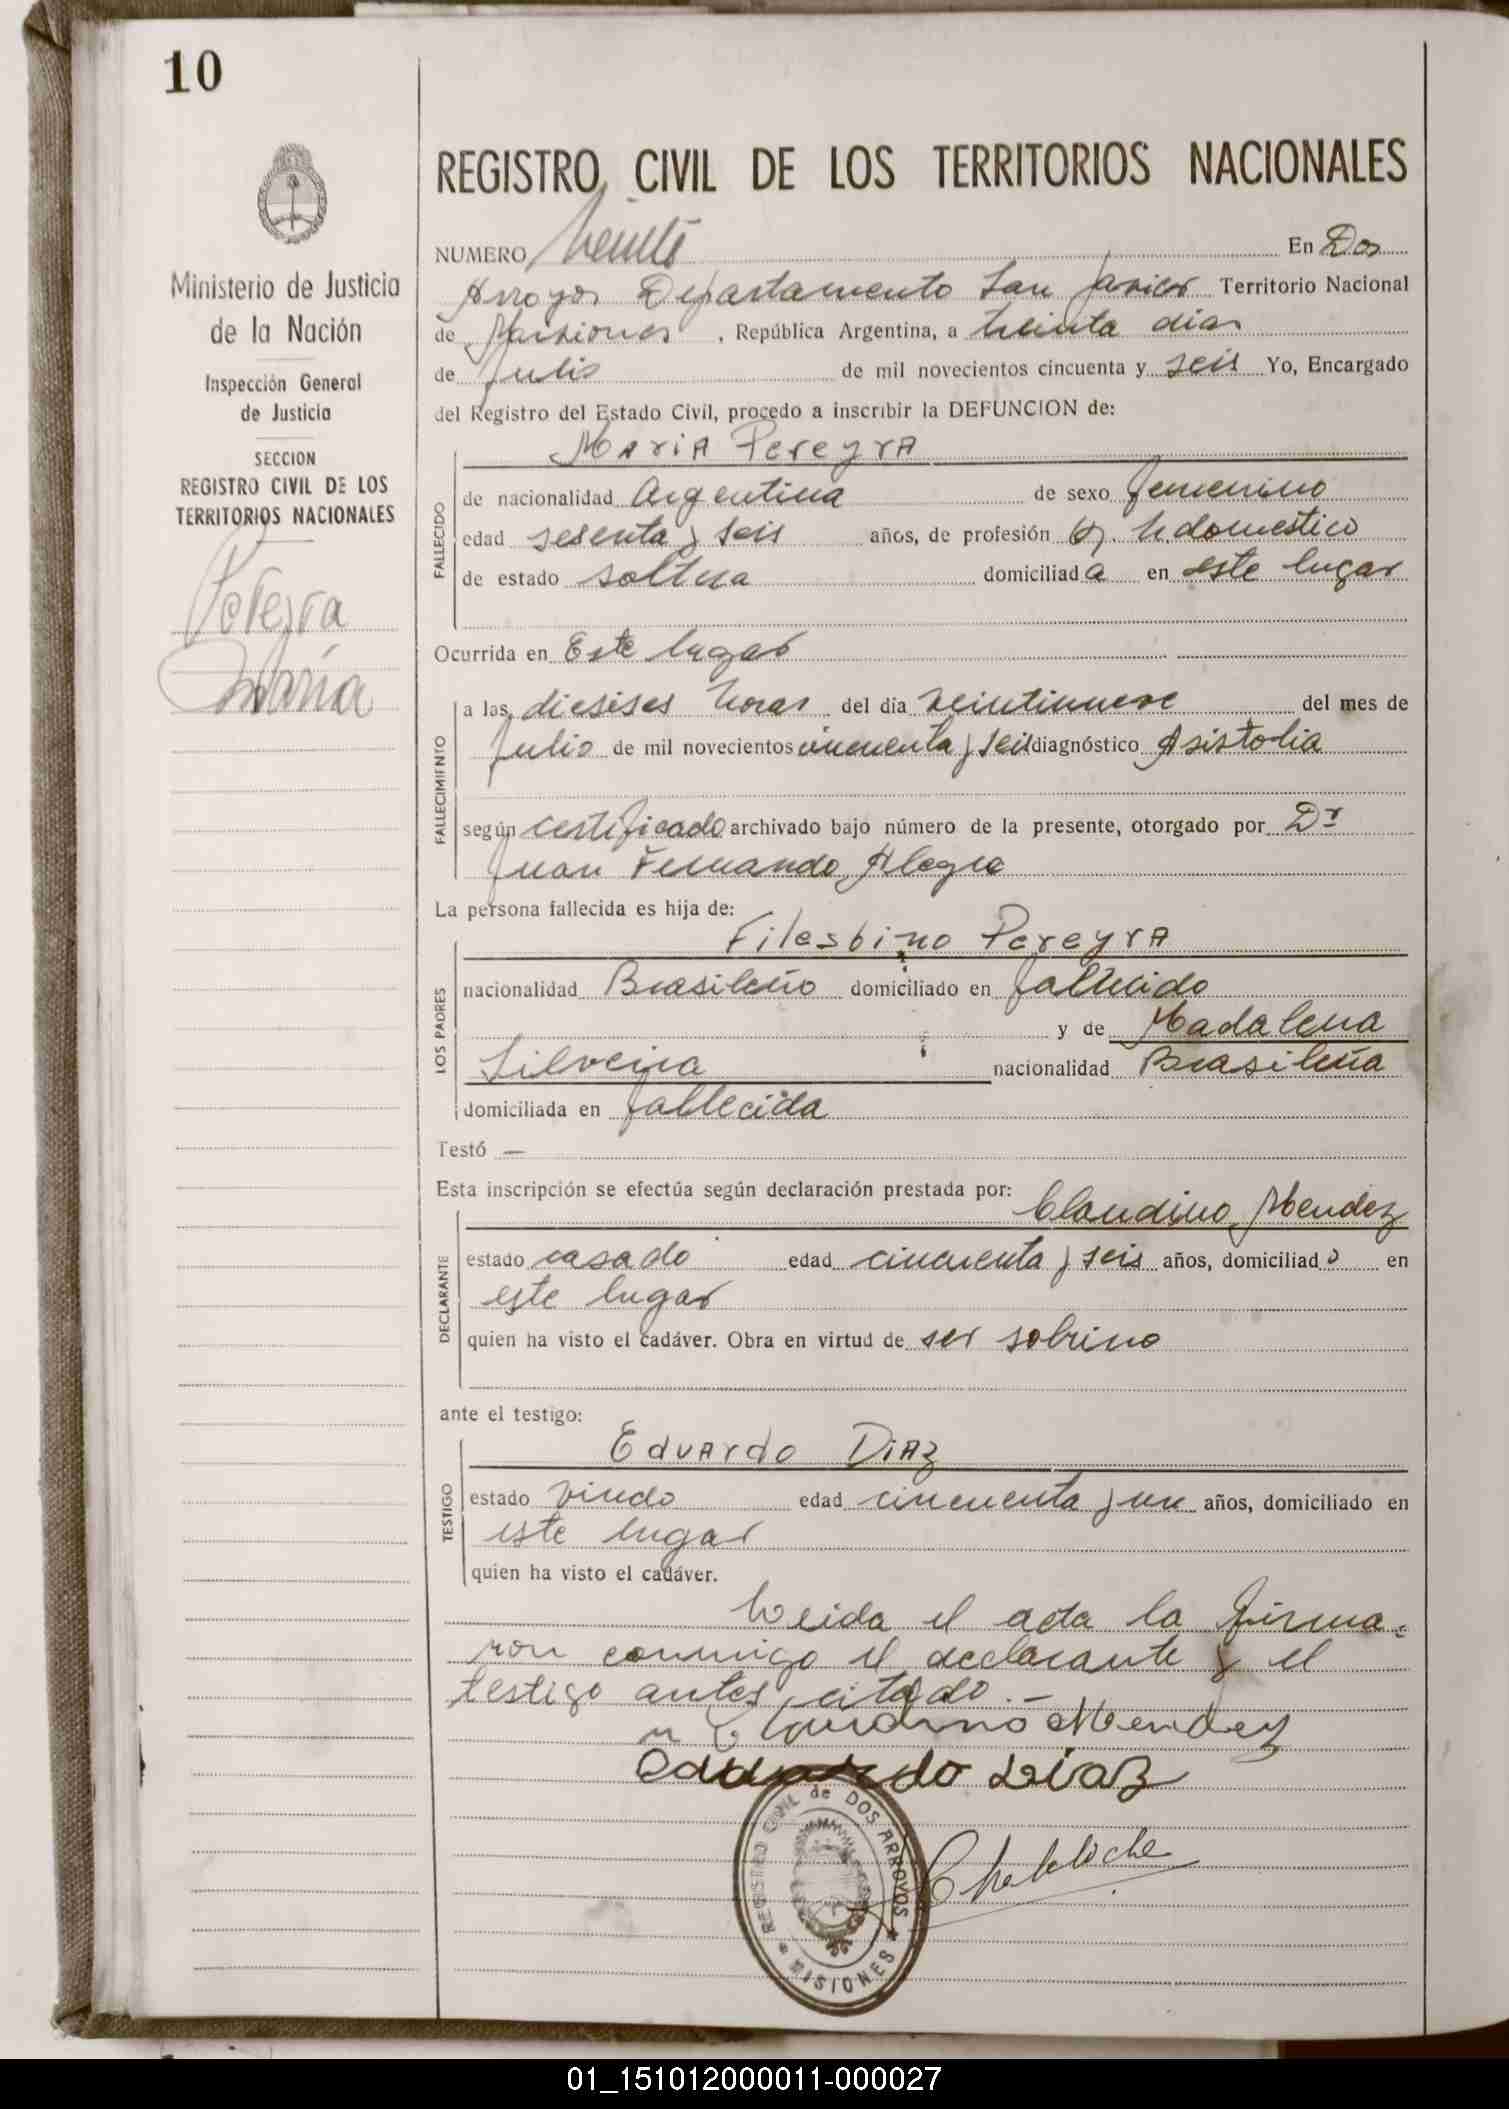 10
REGISTRO CIVIL DE LOS TERRITORIOS NACIONALES
Ministerio de Justicia
de la Nación
Inspección General
de Justicia
SECCION
REGISTRO CIVIL DE LOS
TERRITORIOS NACIONALES
Pereyra
Maria
NUMERO Veinte En Dos
Arroyos Departamento San Javier Territorio Nacional
de Misiones, República Argentina, a treinta dias
de Julio de mil novecientos cincuenta y seis Yo, Encargado
del Registro del Estado Civil, procedo a inscribir la DEFUNCION de:
MARIA PEREYRA
FALLECIDO
de nacionalidad Argentina de sexo femenino
edad sesenta y seis años, de profesión Q. h. domestico
de estado soltera domiciliada en este lugar
Ocurrida en Este lugar
FALLECIMIENTO
a las dieseises horas del día veintinueve del mes de
Julio de mil novecientos cincuenta y seis diagnóstico Asistolia
según certificado archivado bajo número de la presente, otorgado por Dr
Juan Fernando Alegre
La persona fallecida es hija de:
Filesbino Pereyra
LOS PADRES
nacionalidad Brasileño domiciliado en fallecido
y de Madalena
Silveira nacionalidad Brasileña
domiciliada en fallecida
Testó —
Esta inscripción se efectúa según declaración prestada por:
Claudino Mendez
DECLARANTE
estado casado edad cincuenta y seis años, domiciliado en
este lugar
quien ha visto el cadáver. Obra en virtud de ser sobrino
ante el testigo:
Eduardo Diaz
TESTIGO
estado viudo edad cincuenta y un años, domiciliado en
este lugar
quien ha visto el cadáver.
Leida el acta la firma-
ron conmigo el declarante y el
testigo antes citado.-
Claudino Mendez
Eduardo Diaz
REGISTRO CIVIL de DOS ARROYOS
* MISIONES *
01_151012000011-000027